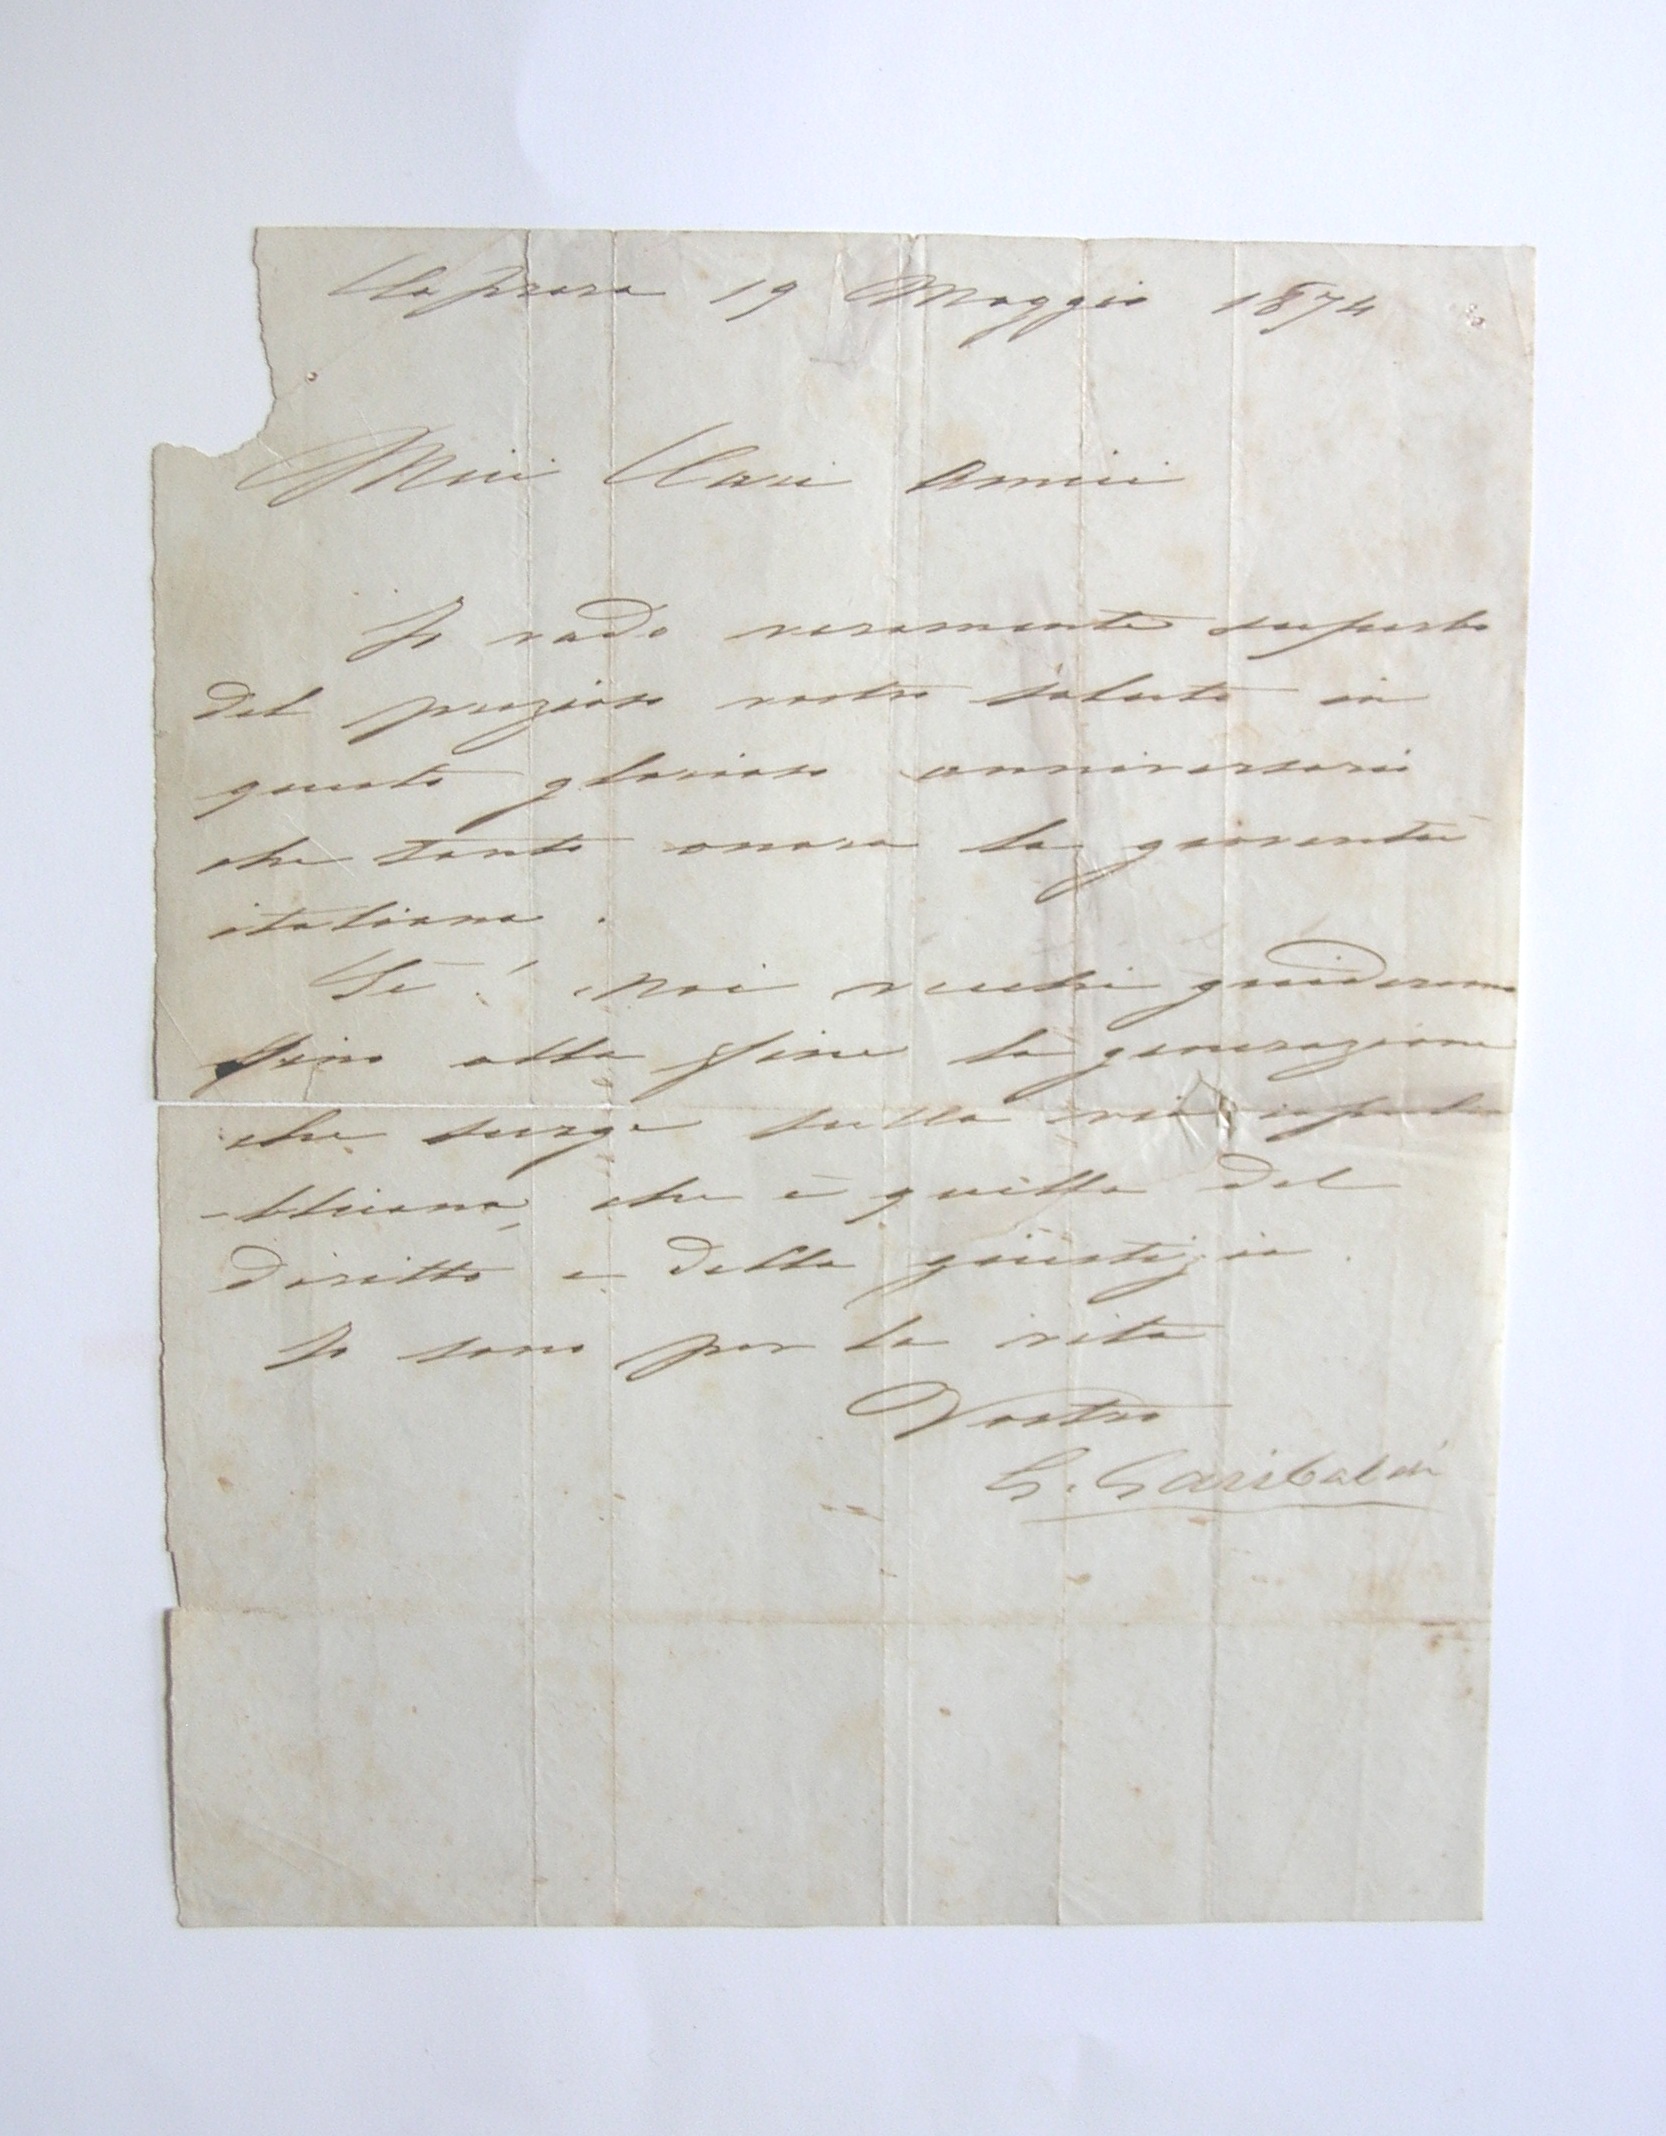 Caprera 19 Maggio 1874
Miei Cari amici
Io vado veramente superbo
del prezioso vostro saluto in
questo glorioso anniversario
che tanto onora la gioventù
italiana.
Sì! noi vecchi guideremo
fino alla fine la generazione
che surge sulla via repu
-blicana, che è quella del
diritto e della giustizia.
Io sono per la vita
Vostro
G. Garibaldi